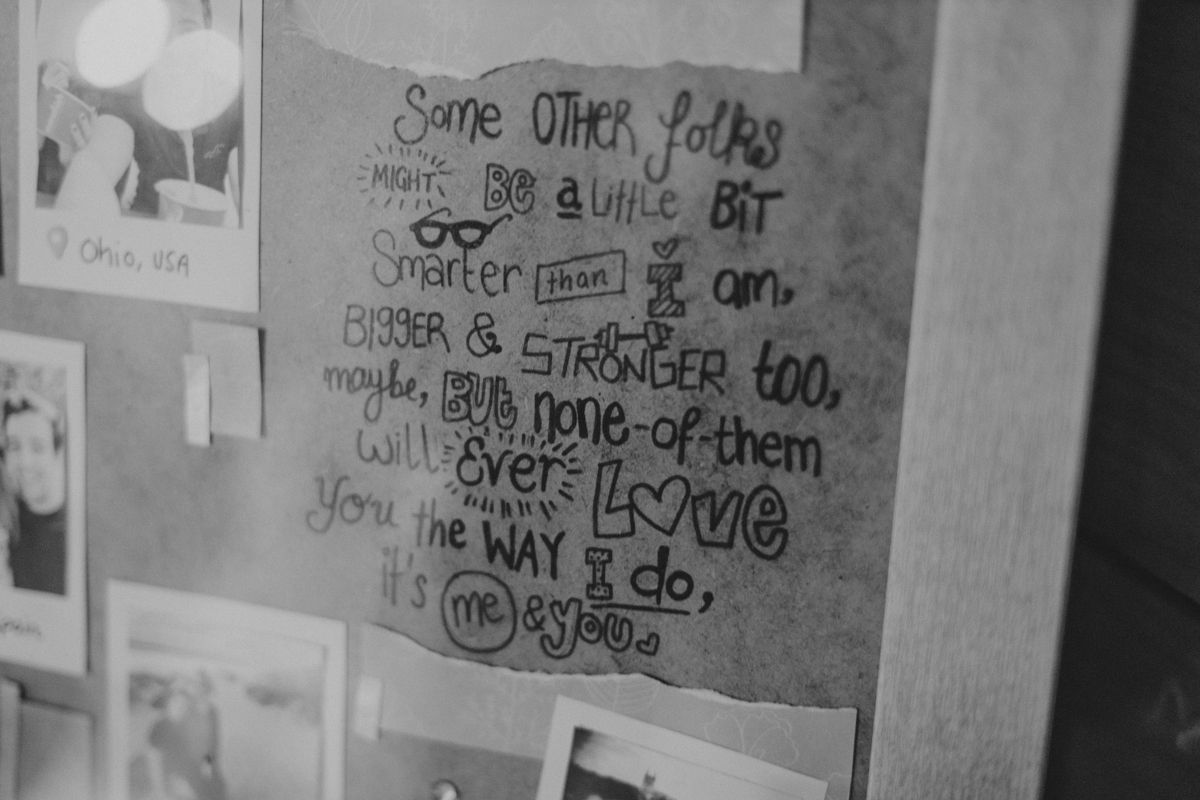 Some OTHER folks
MIGHT BE a Little BiT
Smarter than I am,
BIGGER & STRONGER too,
maybe, BUt none-of-them
will Ever Love
You the WAY I do,
it's me & you
Ohio, USA